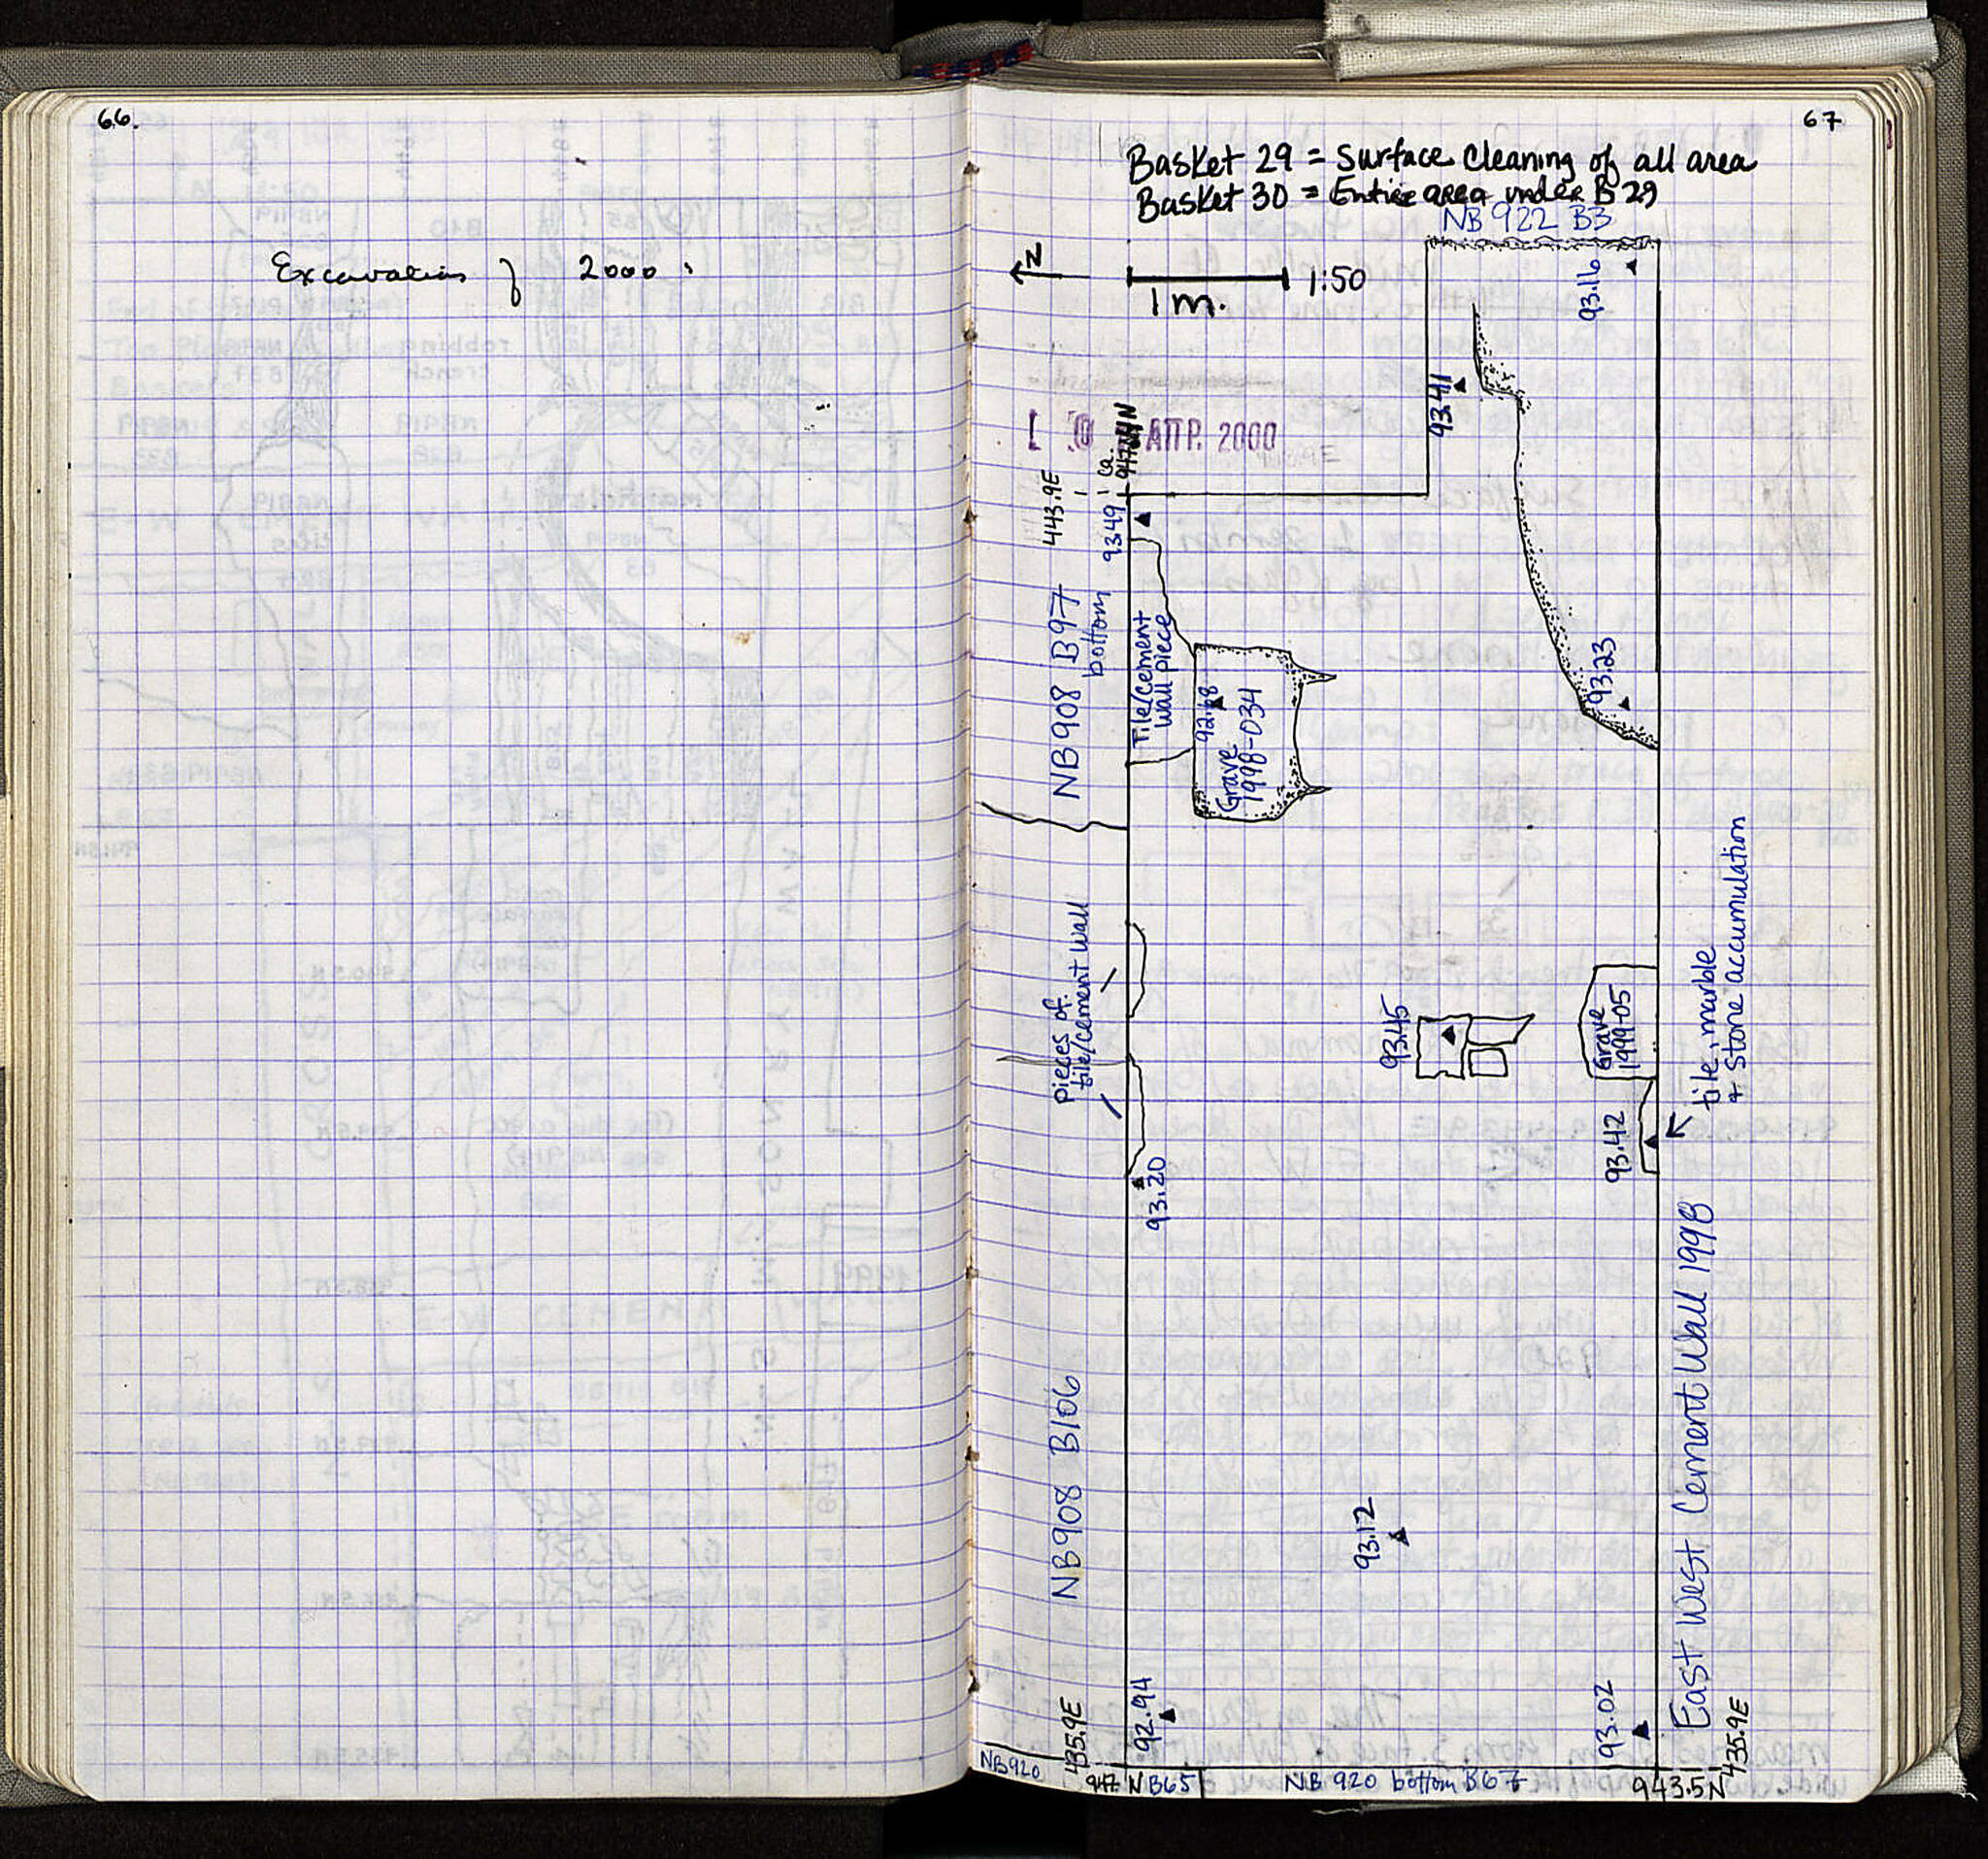 66.
Excavations of 2000:
67
Basket 29 = Surface Cleaning of all area
Basket 30 = Entire area under B29
NB 922 B3
N
1:50
1 m.
93.16
93.41
ΑΠΡ. 2000
ca.
443.9E
93.49
NB908 B97
bottom
Tile/cement
wall piece
92.68
Grave
1998-034
93.23
pieces of
tile/cement wall
93.45
Grave
1999-05
tile, marble
+ stone accumulation
93.42
93.20
NB908 B106
93.12
East West Cement Wall 1998
435.9E
92.94
93.02
435.9E
NB920
947. N
B65
NB 920 bottom B67
943.5N